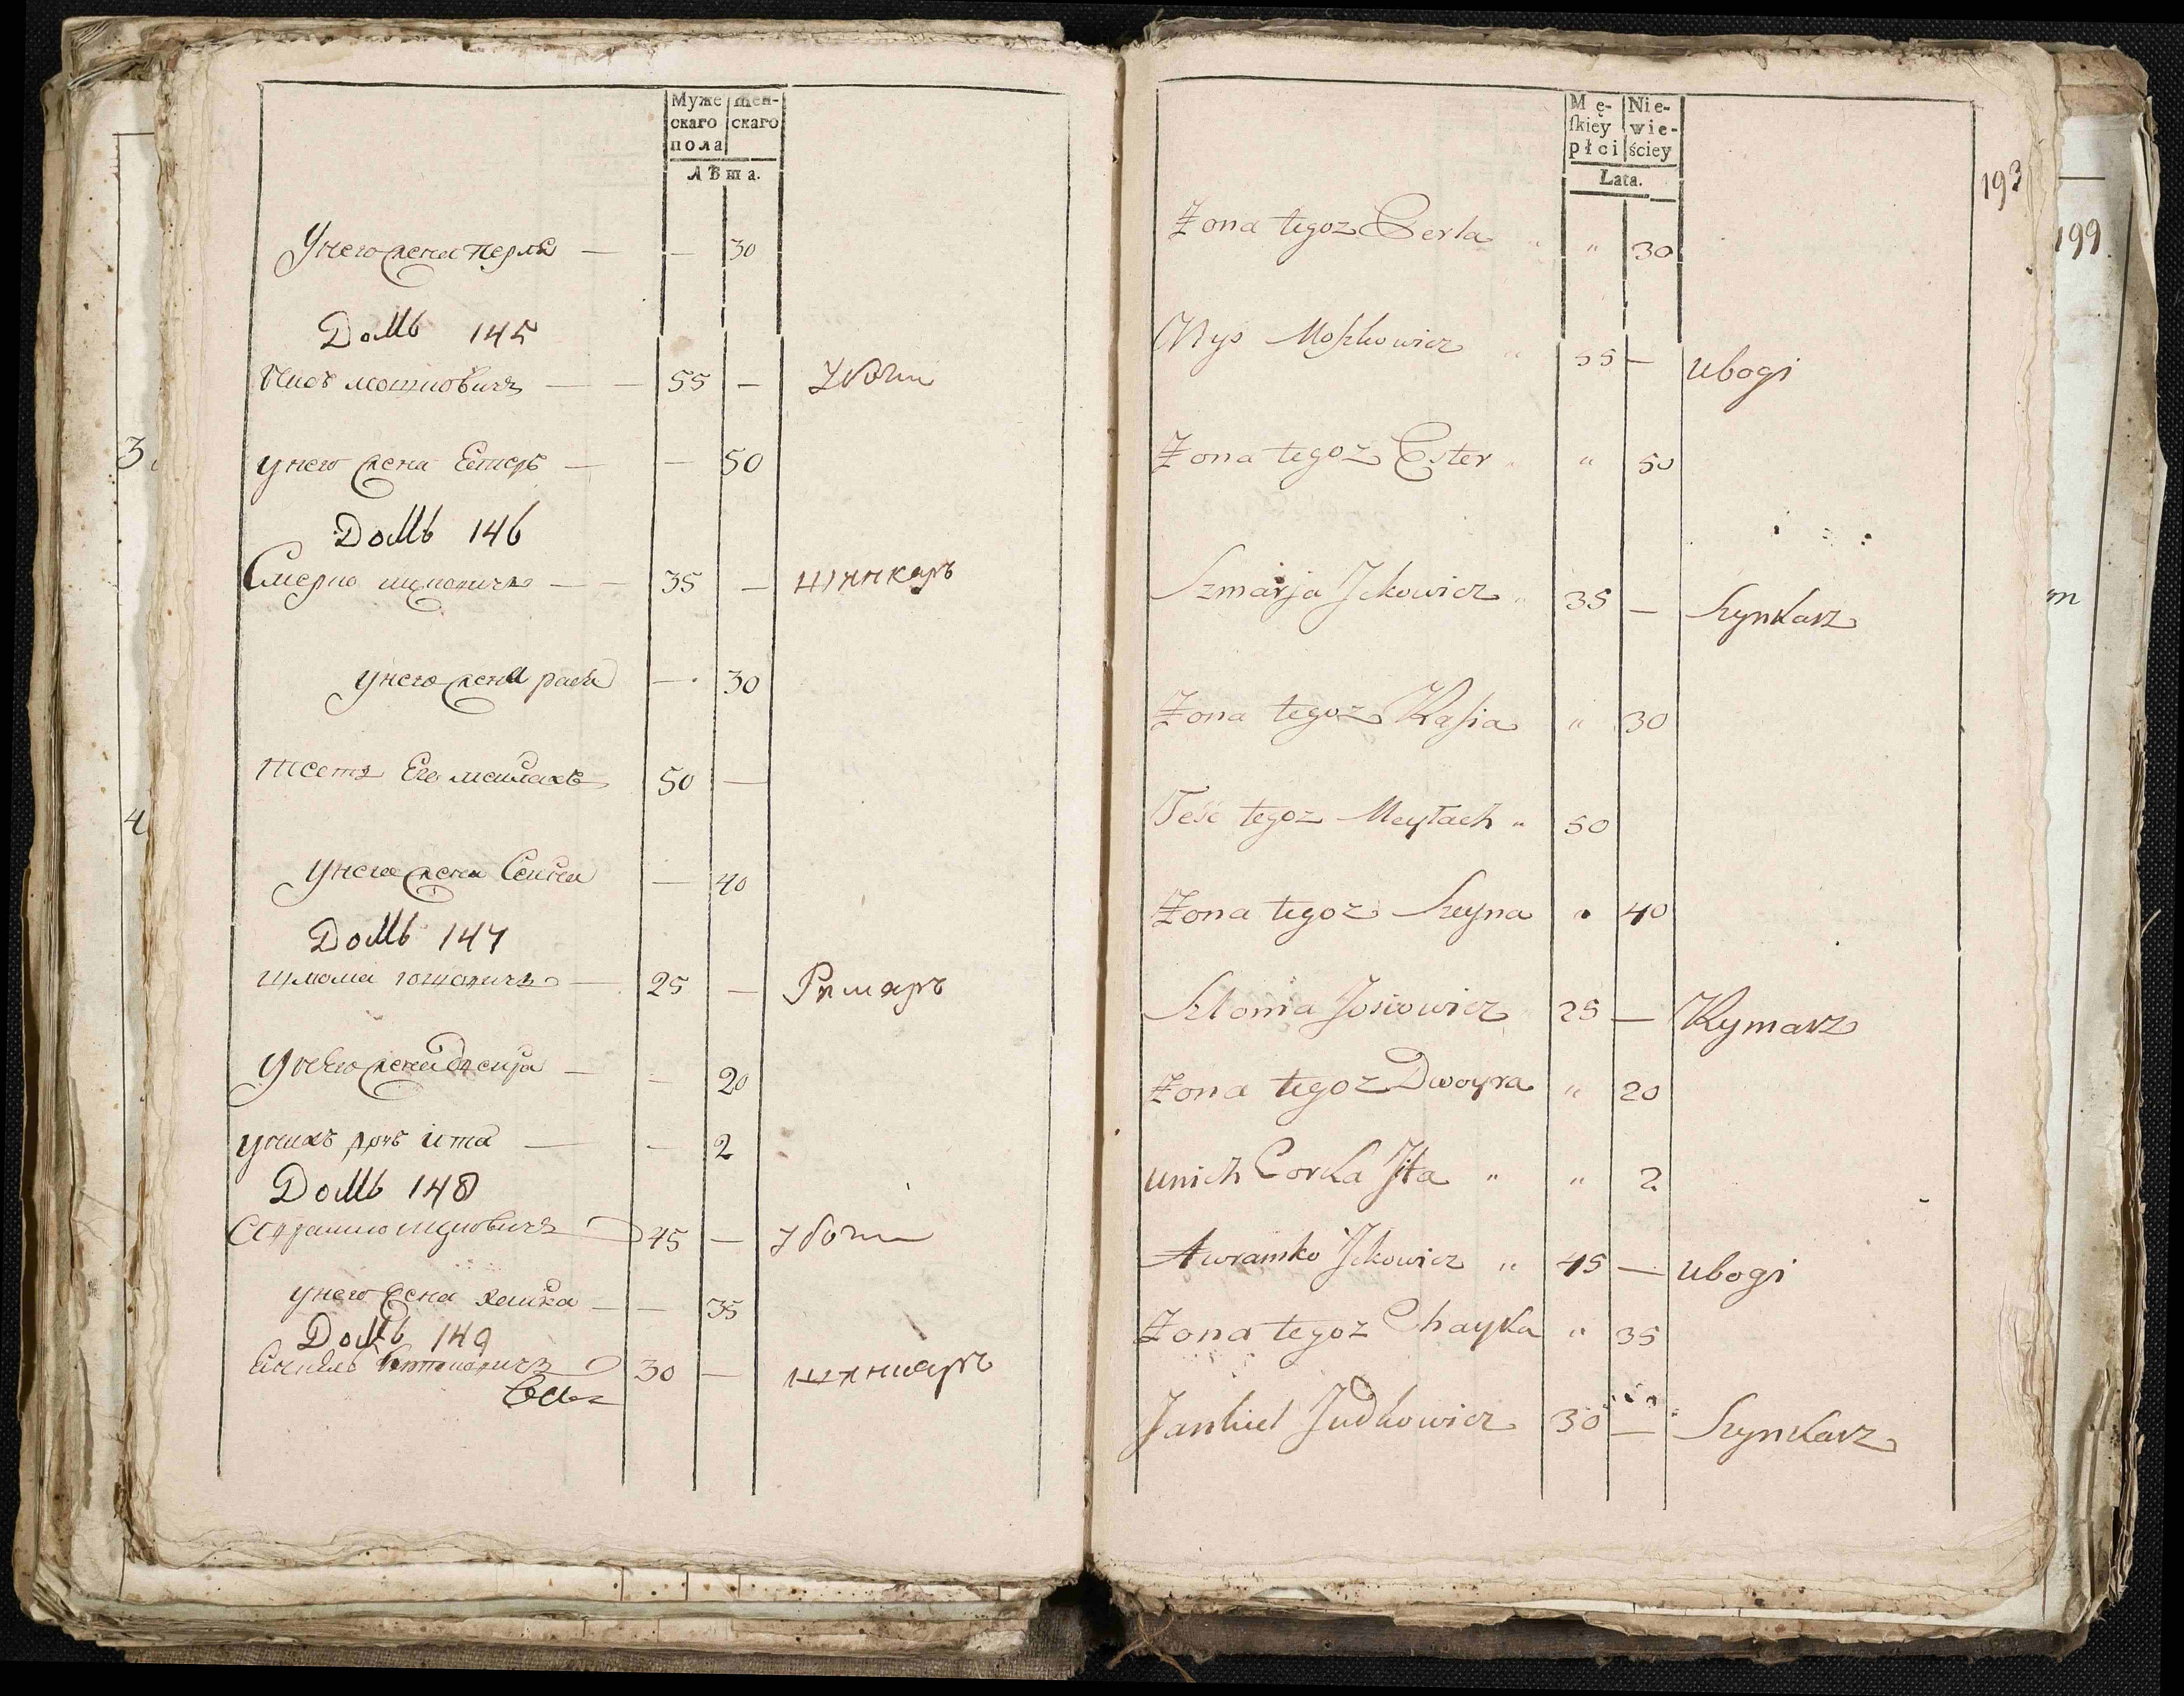 Муже шен-
скаго скаго
пола
Лѣта.
У него жена Перла — — 30
Домъ 145
Нисъ мошковичъ — — 55 — Убоги
у него жена Естеръ — — 50
Домъ 146
Смерио ицковичъ — — 35 — шинкаръ
у него жена рася — 30
тесть Его меилахъ 50 —
у него жена Сеина — 40
Домъ 147
шлома иошовичъ — 25 — Римаръ
У него жена двеира — — 20
у нихъ дочь ита — — 2
Домъ 148
Аврамко ицковичъ 45 — Убоги
у него жена хаика — — 35
Домъ 149
30 — шинкаръ
Mę- Nie-
ſkiey wie-
płci ściey
Lata.
193
Żona tegoz Perla " " 30
Nys Moszkowicz " 55 — Ubogi
Żona tegoz Ester " " 50
Szmarja Jckowicz " 35 — Szynkarz
Żona tegoz Rasia " 30
Teść tegoz Meyłach " 50
Żona tegoz Szeyna " 40
Szloma Josiowicz 25 — Rymarz
Żona tegoz Dwoyra " 20
unich Corka Jta " " 2
Awramko Jckowicz " 45 — Ubogi
Żona tegoz Chayka " 35
Jankiel Judkowicz 30 — Szynkarz
3
4
199
m